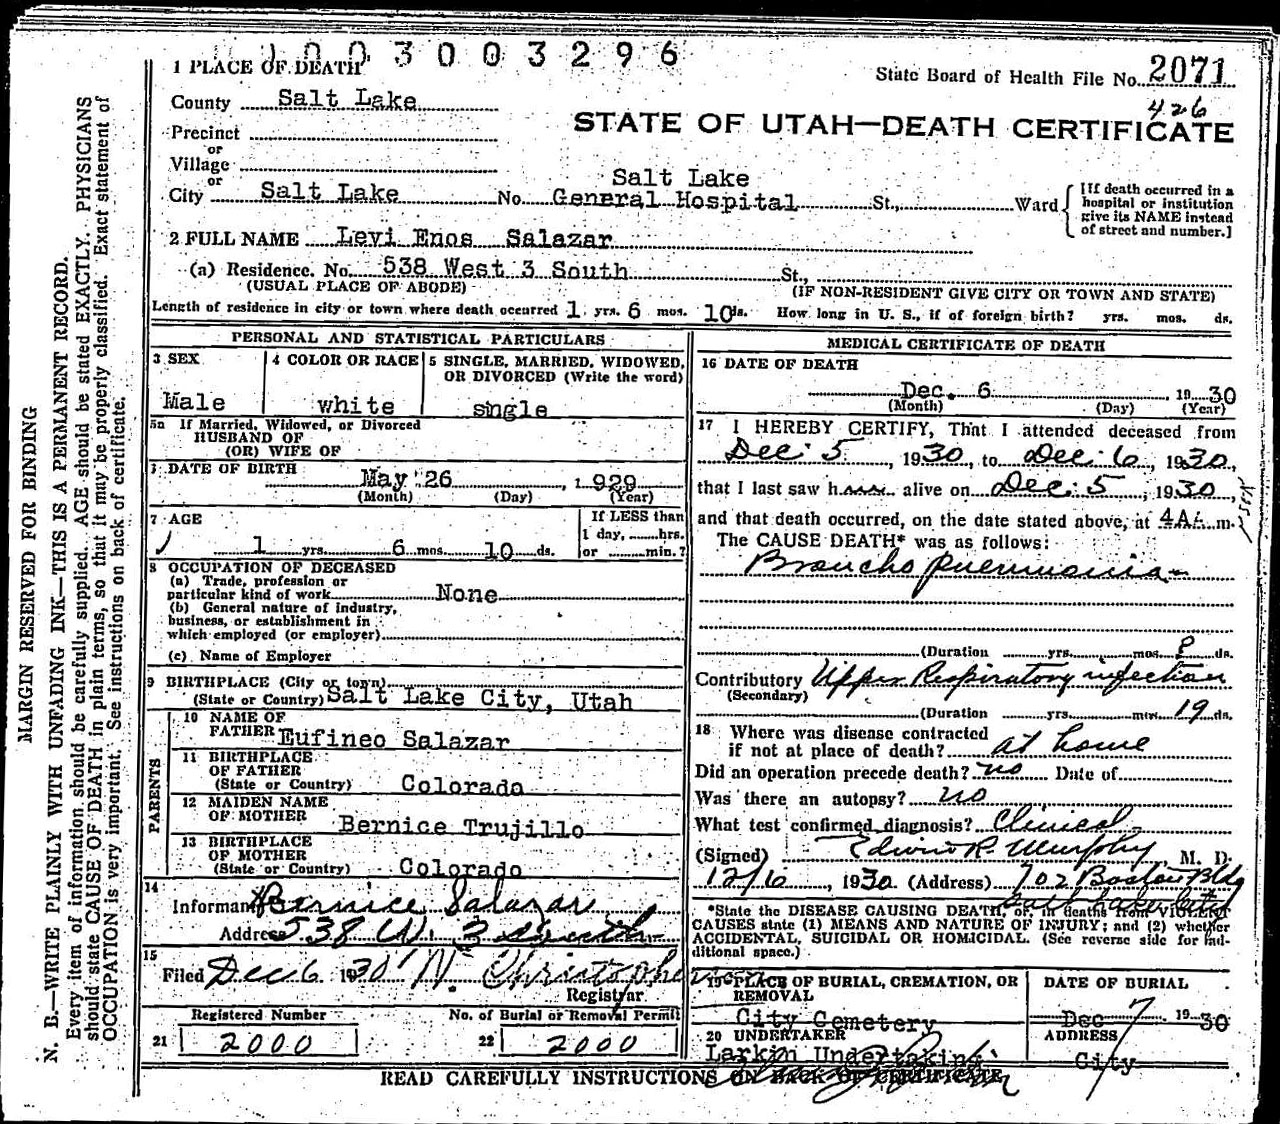 1003003296
1 PLACE OF DEATH
State Board of Health File No. 2071
426
County Salt Lake
STATE OF UTAH—DEATH CERTIFICATE
Precinct
or
Village
or
City Salt Lake No. Salt Lake General Hospital St., Ward
[If death occurred in a
hospital or institution
give its NAME instead
of street and number.]
2 FULL NAME Levi Enos Salazar
(a) Residence. No. 538 West 3 South St.,
(USUAL PLACE OF ABODE) (IF NON-RESIDENT GIVE CITY OR TOWN AND STATE)
Length of residence in city or town where death occurred 1 yrs. 6 mos. 10 ds. How long in U. S., if of foreign birth? yrs. mos. ds.
PERSONAL AND STATISTICAL PARTICULARS
3 SEX
Male
4 COLOR OR RACE
white
5 SINGLE, MARRIED, WIDOWED,
OR DIVORCED (Write the word)
single
5a If Married, Widowed, or Divorced
HUSBAND OF
(OR) WIFE OF
DATE OF BIRTH
May 26, 1929
(Month) (Day) (Year)
7 AGE
1 yrs. 6 mos. 10 ds.
If LESS than
1 day, hrs.
or min.?
8 OCCUPATION OF DECEASED
(a) Trade, profession or
particular kind of work None
(b) General nature of industry,
business, or establishment in
which employed (or employer)
(c) Name of Employer
9 BIRTHPLACE (City or town)
(State or Country) Salt Lake City, Utah
PARENTS
10 NAME OF
FATHER Eufineo Salazar
11 BIRTHPLACE
OF FATHER
(State or Country) Colorado
12 MAIDEN NAME
OF MOTHER Bernice Trujillo
13 BIRTHPLACE
OF MOTHER
(State or Country) Colorado
14
Informant Bernice Salazar
Address 538 W. 3 South
15
Filed Dec 6 1930 N. Christopherson
Registrar
Registered Number
21 2000
No. of Burial or Removal Permit
22 2000
MEDICAL CERTIFICATE OF DEATH
16 DATE OF DEATH
Dec. 6, 1930
(Month) (Day) (Year)
17 I HEREBY CERTIFY, That I attended deceased from
Dec. 5, 1930, to Dec. 6, 1930,
that I last saw him alive on Dec. 5, 1930,
and that death occurred, on the date stated above, at 4 A. m.
The CAUSE DEATH* was as follows:
Broncho pneumonia
(Duration yrs. mos. ds.
Contributory Upper Respiratory infection
(Secondary)
(Duration yrs. mos. 19 ds.
18 Where was disease contracted
if not at place of death? at home
Did an operation precede death? no Date of
Was there an autopsy? no
What test confirmed diagnosis? Clinical
(Signed) Edwin R. Murphy, M. D.
12/6, 1930 (Address) 702 Boston Bldg
Salt Lake City
*State the DISEASE CAUSING DEATH, or, in deaths from VIOLENT
CAUSES state (1) MEANS AND NATURE OF INJURY; and (2) whether
ACCIDENTAL, SUICIDAL OR HOMICIDAL. (See reverse side for additional space.)
19 PLACE OF BURIAL, CREMATION, OR
REMOVAL
City Cemetery
DATE OF BURIAL
Dec 7 1930
20 UNDERTAKER
Larkin Undertaking
ADDRESS
City
READ CAREFULLY INSTRUCTIONS ON BACK OF CERTIFICATE
MARGIN RESERVED FOR BINDING
N. B.—WRITE PLAINLY WITH UNFADING INK—THIS IS A PERMANENT RECORD.
Every item of information should be carefully supplied. AGE should be stated EXACTLY. PHYSICIANS
should state CAUSE OF DEATH in plain terms, so that it may be properly classified. Exact statement of
OCCUPATION is very important. See instructions on back of certificate.